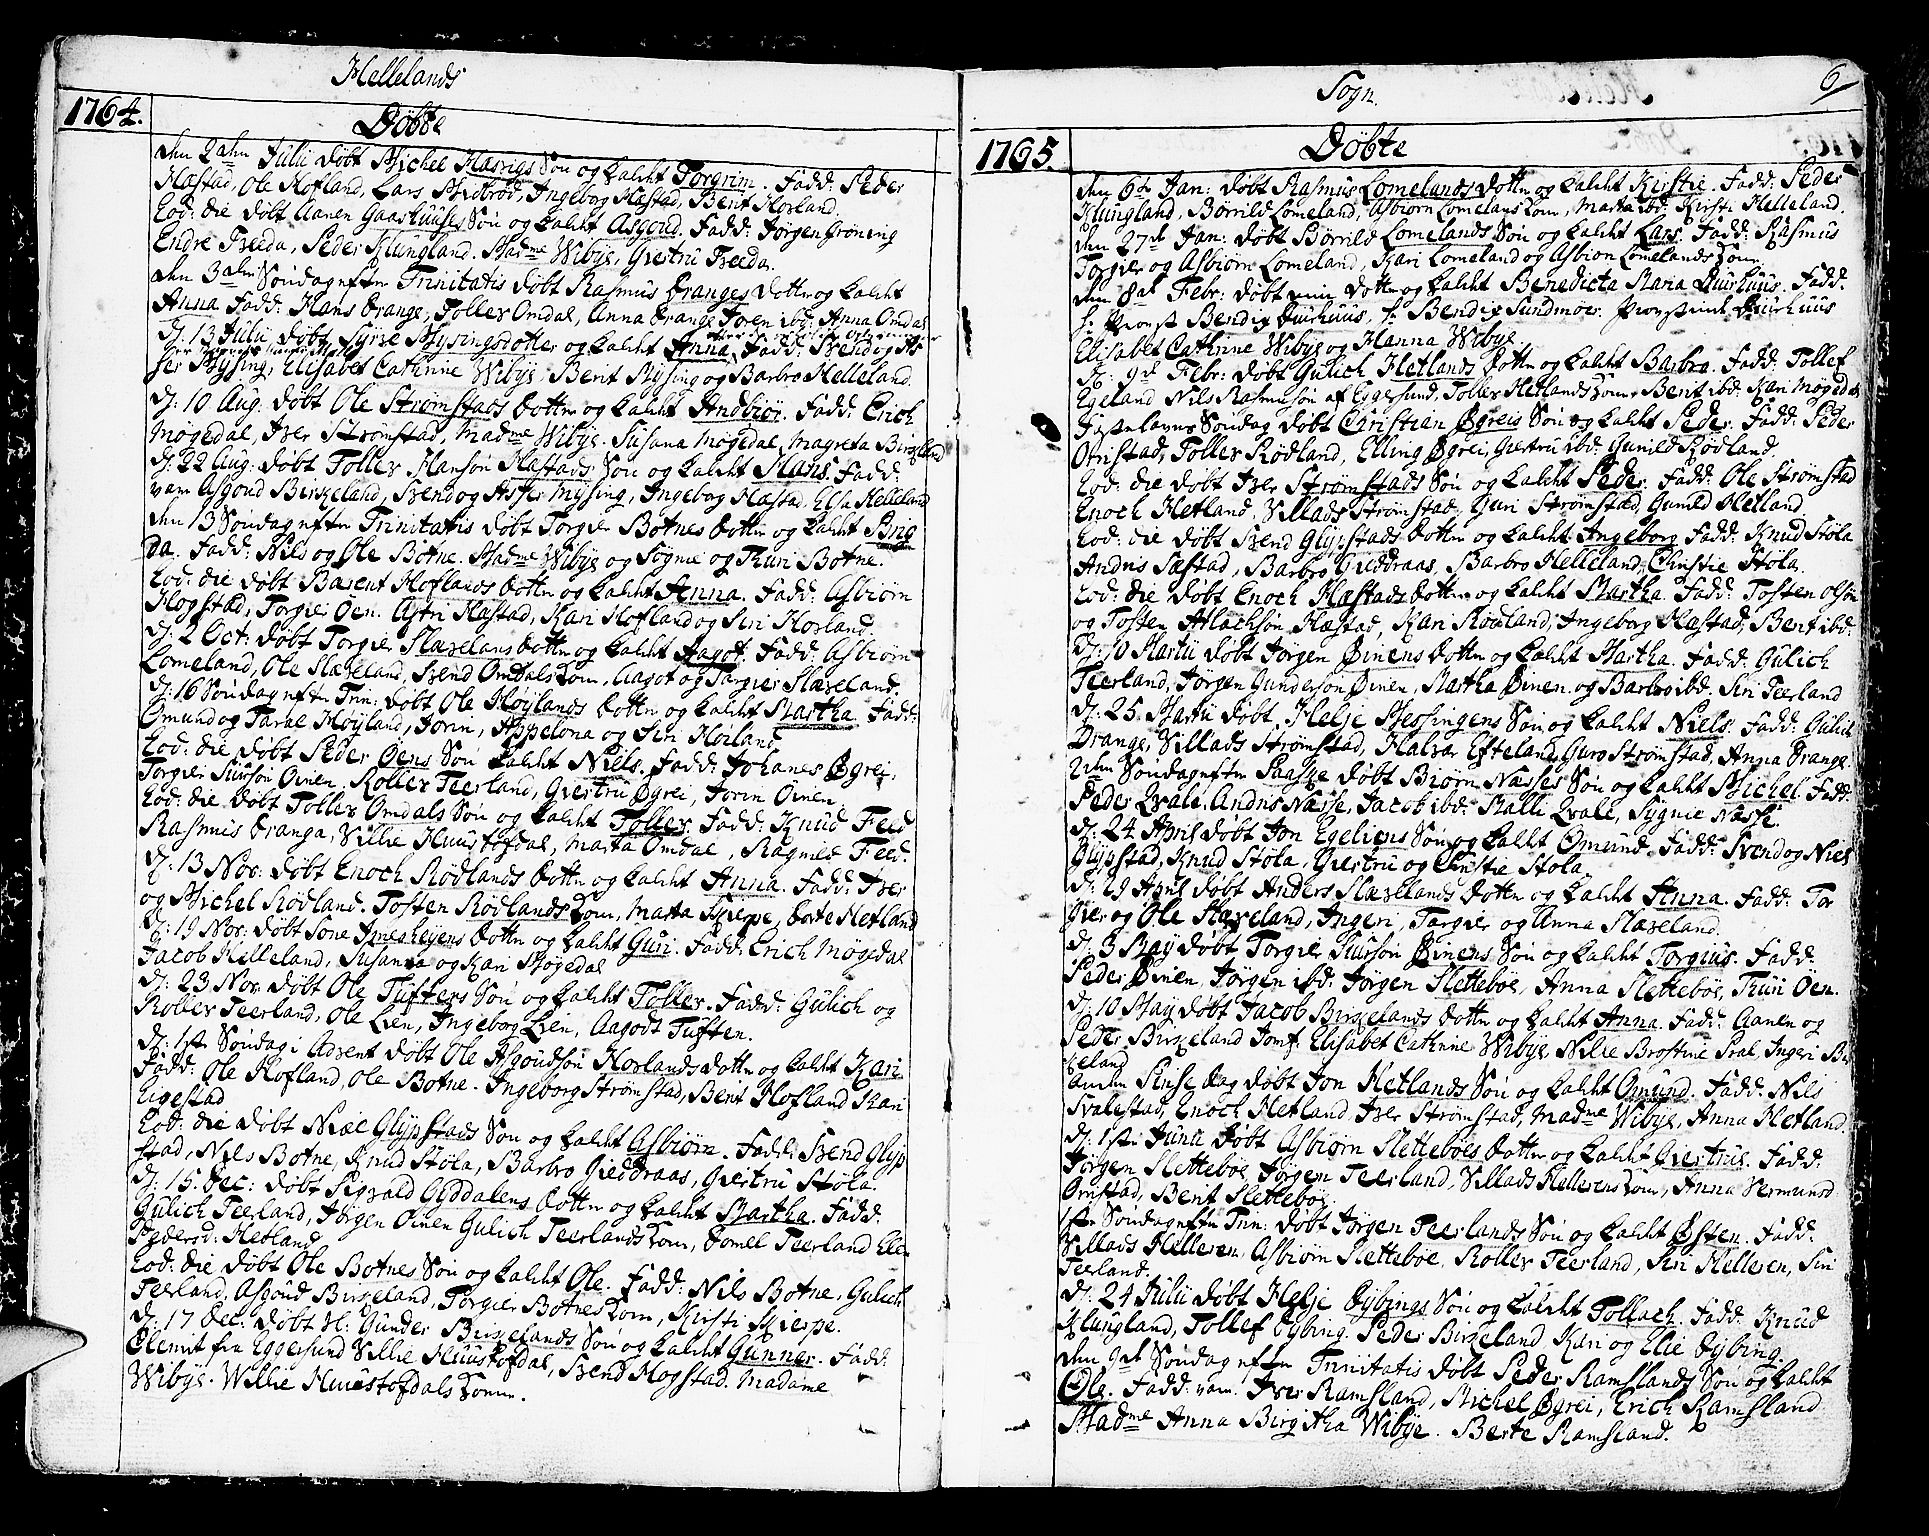 Hellelands
1764.
Döbte
den 2den Julii döbt Michel Hæstigs Sön og kaldt Torgrim. Fadd: Peder
Hæstad, Ole Hofland, Lars Ingeborg Hæstad, Berit Horland.
Eod: die döbt Aanen Gaashuuses Sön og kaldt Asgoud. Fadd: Jörgen Gröning
Endre Freda, Peder Klungland. Madme Wibÿe, Giertru Freda.
den 3den Söndag efter Trinitatis döbt Rasmus Oranges Dotter og kaldt
Anna Fadd: Hans Orange, Toller Omdal, Anna Orange Joren ibd: Anna Omdal
D: 13 Julii döbt Mysings dotter og kaldt Anna. Fadd: Svend og As-
ser Mÿsing, Elisabet Cathrine Wibÿe, Berit Mÿsing og Barbro Helleland.
D: 10 Aug: döbt Ole Strömstads Dotter og kaldt Andbiör. Fadd: Erich
Mögedal, Iver Strömstad, Madme Wibÿe. Susana Mögedal, Magreta Birkeland
D: 22 Aug: döbt Toller Hansön Hæstads Sön og kaldt Hans. Fadd:
vare Asgoud Birkeland, Svend og Asser Mysing, Ingeborg Hæstad, Elsa Helleland
den 13 Söndag efter Trinitatis döbt Torgier Botnes Dotter og kaldt Brig
da. Fadd: Niels og Ole Botne. Madme Wibÿe og Sogne og Thuri Botne.
Eod: die döbt Barent Hoflands Dotter og kaldt Anna. Fadd: Asbiörn
Hogstad, Torgier Öen. Astri Hæstad, Kari Hofland og Siri Horland.
D: 2 Oct: döbt Torgier Slæxelans Dotter og kaldt Aagot. Fadd: Asbiörn
Lomeland, Ole Slæxeland, Svend Omdals Kone, Aagot og Torgier Slæxeland.
D: 16 Söndag efter Trin: döbt Ole Höjlands Dotter og kaldt Martha. Fadd:
Omund og Taral Höyland, Jorin, Appelona og Siri Horland
Eod: die döbt Peder Öens Sön kaldt Niels. Fadd: Johanes Øgrei,
Torgier Siursön Oinen, Roller Teerland, Giertru Øgrei, Jorin Oinen.
Eod: die döbt Toller Omdals Sön og kaldt Toller. Fadd: Knud Feed
Rasmus Dranga, Villie Huustofdal, Marta Omdal, Ragnild Feed.
D: 13 Nov: döbt Enoch Rödlands Dotter og kaldt Anna. Fadd: Iver
og Michel Rödland. Tosten Rödlands Kone, Marta Skierpe, Dorte Hetland
D: 19 Nov: döbt Sone Dotter og kaldt Guri. Fadd: Erich Mögedal
Jacob Helleland, Susanna og Kari Mögedal
D: 23 Nov. döbt Ole Tuftens Sön og kaldt Toller. Fadd: Gulich og
Roller Teerland, Ole Lien, Ingeborg Lien, Aagodt Tuften.
D: 1ste Söndag i Advent döbt Ole Asgoudsön Horlands dotter og kaldt Kari
Fadd: Ole Hofland, Ole Botne. Ingeborg Strömstad, Berit Hofland Kari
Eigestad
Eod: die döbt Niæl Glypstads Sön og kaldt Asbiörn. Fadd: Svend Glyp
stad, Niels Botne, Knud Stöla, Barbro Gieddraas, Giertru Stöla.
D: 15: Dec: döbt Sigvald Gyddalens Dotter og kaldt Martha. Fadd:
Gulich Teerland, Jörgen Oinen Gulich Teerlands Kone, Domel Teerland Elen
Pedersd: Hetland
Eod: die döbt Ole Botnes Sön og kaldt Ole. Fadd: Nils Botne, Gulich
Teerland, Asgoud Birkeland, Torgier Botnes Kone, Kirsti Skierpe.
D: 17 Dec: döbt H: Gunder Birkelands Sön og kaldt Gunner. Fadd:
Clemit fra Eggersund Villie Huustofdal, Svend Hogstad. Madame
Wibÿe. Willie Huustofdals Kone.
Sogn.
6
1765.
Döbte
den 6te Jan: döbt Rasmus Lomelands Dotter og kaldt Kirstie. Fadd: Peder
Klungland, Börrild Lomeland, Asbiörn Lomelans Kone, Marta ibd: Kirsti Helleland.
den 27de Jan: döbt Börrild Lomelands Sön og kaldt Lars. Fadd: Rasmus
Torgier og Asbiörn Lomeland, Kari Lomeland og Asbiön Lomelands Kone
den 8de Febr: döbt min Dotter og kaldt Benedicta Maria Duurhuus. Fadd:
H: Provst Bendix Duurhuus, H: Bendix Sundmoer. Provstinde Duurhuus
Elisabet Cathrine Wibÿe og Hanna Wibÿe.
D: 9de Febr: döbt Gulich Hetlands Dotter og kaldt Barbro. Fadd: Tollef
Egeland Nils Rasmusön af Eggersund, Toller Hetlands Kone, Berit ibd: Kari Mögedal
Fastelavns Söndag döbt Christian Øgreis Sön og kaldt Peder. Fadd: Peder
Ornstad, Toller Rödland, Elling Øgrei, Giertru ibd: Gunild Rödland.
Eod: die döbt Iver Strömstads Sön og kaldt Peder. Fadd: Ole Strömstad
Enoch Hetland, Villads Strömstad, Guri Strömstad, Gunild Hetland.
Eod: die döbt Svend Glypstads Dotter og kaldt Ingeborg Fadd: Knud Stöla
Andris Sæstad, Barbro Gieddraas, Barbro Helleland, Christie Stöla.
Eod: die döbt Enoch Hæstads Dotter og kaldt Martha. Fadd: Tosten olsön
og Tosten Atlachsön Hæstad, Kari Rödland, Ingeborg Hæstad, Berit ibd:
D: 10 Martii döbt Jörgen Øinens Dotter og kaldt Martha. Fadd: Gulich
Teerland, Jörgen Gunderson Øinen, Martha Øinen og Barbro ibd: Siri Teerland
D: 25 Martii döbt Helje Messingens Sön og kaldt Niels. Fadd: Gulich
Drange, Villads Strömstad, Halvar Efteland, Guro Strömstad, Anna Drange.
2den Söndag efter Paaske döbt Biörn Næsses Sön og kaldt Michel. Fadd:
Peder Qvale, Andris Næsse, Jacob ibd: Malli Qvale, Sygnie Næsse.
D: 24 April döbt Jon Egeliens Sön og kaldt Omund. Fadd: Svend og Niels
Glypstad, Knud Stöla, Giertru og Christie Stöla.
D: 29 April döbt Anders Slæxelands Dotter og kaldt Anna. Fadd: Tor
gier og Ole Slæxeland, Ingeri, Torgier og Anna Slæxeland.
D: 3 May döbt Torgier Siursön Øinens Sön og kaldt Torgius. Fadd:
Peder Øinen, Jörgen ibd: Jörgen Sletteböe, Anna Sletteböe, Thuri Öen.
D: 10 May döbt Jacob Birkelands Dotter og kaldt Anna. Fadd: Aanen og
Peder Birkeland Jomf: Elisabet Cathrine Wibÿe, Nilie Brostine Pral, Ingeri Bir
keland
Anden Pinse dag döbt Jon Hetlands Sön og kaldt Omund. Fadd: Nils
Svalestad, Enoch Hetland Iver Strömstad, Madme Wibÿe, Anna Hetland.
D: 1ste: Junii döbt Asbiörn Sletteböes Dotter og kaldt Giertrue. Fadd:
Jörgen Sletteböe, Jörgen Teerland, Villads Hellerens Kone, Anna Vermund
Ornstad, Berit Sletteböe.
1ste Söndag efter Trin: döbt Jörgen Teerlands Sön og kaldt Østen. Fadd:
Villads Helleren, Asbiörn Sletteböe, Roller Teerland, Siri Helleren, Siri
Teerland.
D: 24 Julii döbt Helje Eybings Sön og kaldt Tollach. Fadd: Knud
Klungland, Tollef Eybing. Peder Birkeland Kari og Elie Eybing.
den 9de Söndag efter Trinitatis döbt Peder Ramslands Sön og kaldt
Ole. Fadd: vare Iver Ramsland, Michel Øgrei, Erich Ramsland
Madme Anna Birgitha Wibÿe. Berte Ramsland.